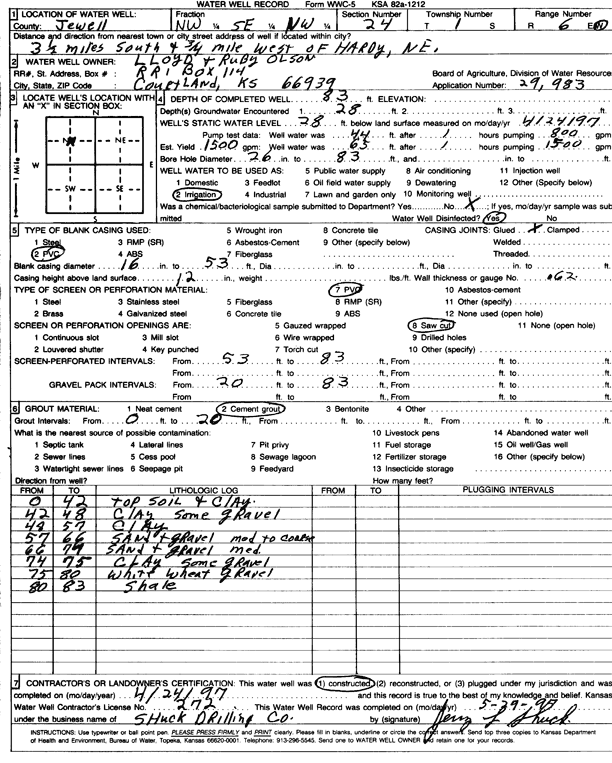 WATER WELL RECORD Form WWC-5 KSA 82a-1212
1 LOCATION OF WATER WELL: Fraction Section Number Township Number Range Number
County: Jewell NW ¼ SE ¼ NW ¼ 24 T 1 S R 6 E/W
Distance and direction from nearest town or city street address of well if located within city?
3 ½ miles South & ¾ mile west of HARDY, NE.
2 WATER WELL OWNER: LLOYD + RUBY OLSON
RR#, St. Address, Box # : RR1 BOX 114 Board of Agriculture, Division of Water Resources
City, State, ZIP Code : COURTLAND, KS 66939 Application Number: 29,983
3 LOCATE WELL'S LOCATION WITH AN "X" IN SECTION BOX:
N
NW NE
W E
SW SE
S
1 Mile
4 DEPTH OF COMPLETED WELL 83 ft. ELEVATION:
Depth(s) Groundwater Encountered 1. 28 ft. 2. ft. 3. ft.
WELL'S STATIC WATER LEVEL 28 ft. below land surface measured on mo/day/yr 4/24/97
Pump test data: Well water was 44 ft. after 1 hours pumping 800 gpm
Est. Yield 1500 gpm: Well water was 65 ft. after 1 hours pumping 1500 gpm
Bore Hole Diameter 26 in. to 83 ft., and in. to ft.
WELL WATER TO BE USED AS: 5 Public water supply 8 Air conditioning 11 Injection well
1 Domestic 3 Feedlot 6 Oil field water supply 9 Dewatering 12 Other (Specify below)
2 Irrigation 4 Industrial 7 Lawn and garden only 10 Monitoring well
Was a chemical/bacteriological sample submitted to Department? Yes No X ; If yes, mo/day/yr sample was submitted
Water Well Disinfected? Yes No
5 TYPE OF BLANK CASING USED: 5 Wrought iron 8 Concrete tile CASING JOINTS: Glued X Clamped
1 Steel 3 RMP (SR) 6 Asbestos-Cement 9 Other (specify below) Welded
2 PVC 4 ABS 7 Fiberglass Threaded
Blank casing diameter 16 in. to 53 ft., Dia in. to ft., Dia in. to ft.
Casing height above land surface 12 in., weight lbs./ft. Wall thickness or gauge No. .62
TYPE OF SCREEN OR PERFORATION MATERIAL: 7 PVC 10 Asbestos-cement
1 Steel 3 Stainless steel 5 Fiberglass 8 RMP (SR) 11 Other (specify)
2 Brass 4 Galvanized steel 6 Concrete tile 9 ABS 12 None used (open hole)
SCREEN OR PERFORATION OPENINGS ARE: 5 Gauzed wrapped 8 Saw cut 11 None (open hole)
1 Continuous slot 3 Mill slot 6 Wire wrapped 9 Drilled holes
2 Louvered shutter 4 Key punched 7 Torch cut 10 Other (specify)
SCREEN-PERFORATED INTERVALS: From 53 ft. to 83 ft., From ft. to ft.
From ft. to ft., From ft. to ft.
GRAVEL PACK INTERVALS: From 20 ft. to 83 ft., From ft. to ft.
From ft. to ft., From ft. to ft.
6 GROUT MATERIAL: 1 Neat cement 2 Cement grout 3 Bentonite 4 Other
Grout Intervals: From 0 ft. to 20 ft., From ft. to ft., From ft. to ft.
What is the nearest source of possible contamination: 10 Livestock pens 14 Abandoned water well
1 Septic tank 4 Lateral lines 7 Pit privy 11 Fuel storage 15 Oil well/Gas well
2 Sewer lines 5 Cess pool 8 Sewage lagoon 12 Fertilizer storage 16 Other (specify below)
3 Watertight sewer lines 6 Seepage pit 9 Feedyard 13 Insecticide storage
Direction from well? How many feet?
FROM TO LITHOLOGIC LOG FROM TO PLUGGING INTERVALS
0 42 top soil & clay.
42 48 CLAY some gravel
48 57 CLAY
57 66 SAND + gravel med to coarse
66 74 SAND + gravel med.
74 75 CLAY some gravel
75 80 white wheat gravel
80 83 Shale
7 CONTRACTOR'S OR LANDOWNER'S CERTIFICATION: This water well was (1) constructed, (2) reconstructed, or (3) plugged under my jurisdiction and was
completed on (mo/day/year) 4/24/97 and this record is true to the best of my knowledge and belief. Kansas
Water Well Contractor's License No. 272 This Water Well Record was completed on (mo/day/yr) 5-29-97
under the business name of SHUCK DRILLING CO. by (signature) Jerry L Shuck
INSTRUCTIONS: Use typewriter or ball point pen. PLEASE PRESS FIRMLY and PRINT clearly. Please fill in blanks, underline or circle the correct answers. Send top three copies to Kansas Department
of Health and Environment, Bureau of Water, Topeka, Kansas 66620-0001. Telephone: 913-296-5545. Send one to WATER WELL OWNER and retain one for your records.